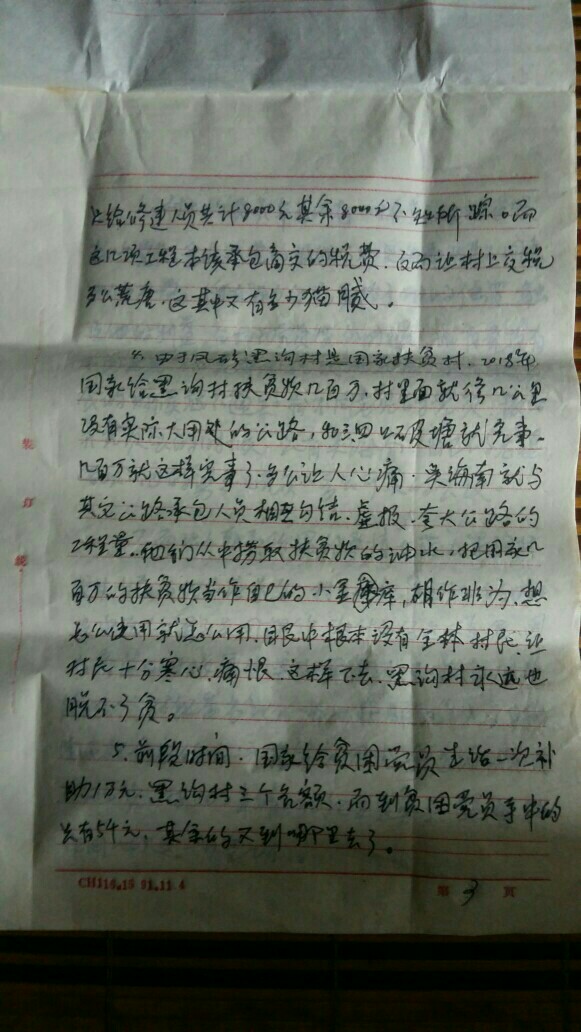 只给修建人员共计8000元其余8000元不知所踪。而
这几项工程本该承包商交的税费,反而让村上交税
多么荒唐,这其中又有多少猫腻。
4.由于凤 黑沟村是国家扶贫村,2018年
国家给黑沟村扶贫款几百万,村里面就修几公里
没有实际大用处的公路,和三四口破塘就完事。
几百万就这样完事了,多么让人心痛,吴海南就与
其它公路承包人员相互勾结,虚报、夸大公路的
工程量,他们从中捞取扶贫款的油水,把国家几
百万的扶贫款当作自己的小金库,胡作非为,想
怎么使用就怎么用,目民中根本没有全体村民,让
村民十分寒心,痛恨,这样下去,黑沟村永远也
脱不了贫。
5.前段时间,国家给贫困党员生活一次补
助1万元,黑沟村三个名额,而到贫困党员手中的
只有5千元,其余的又到哪里去了。
装
订
线
CH110.15 91.12.4
第3页